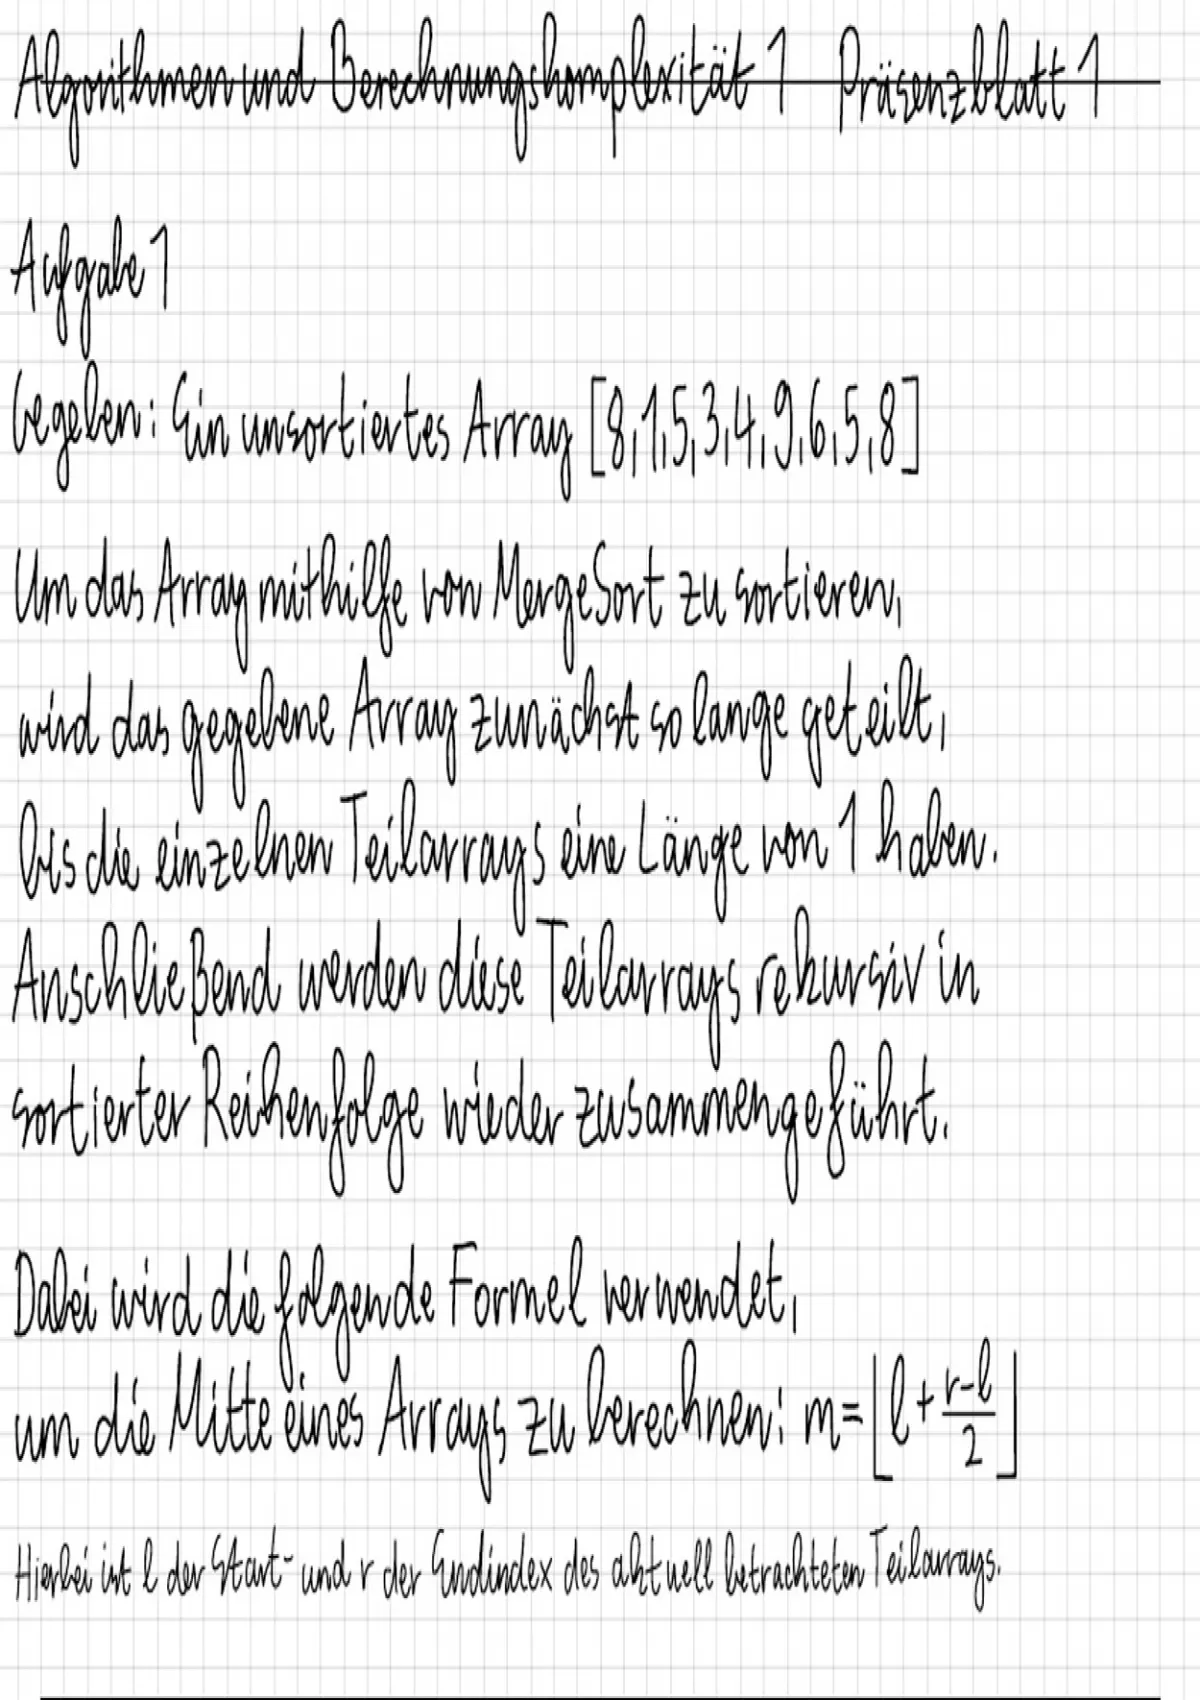 Algorithmen und Berechnungskomplexität 1 Präsenzblatt 1
Aufgabe 1
Gegeben: Ein unsortiertes Array [8,1,5,3,4,9,6,5,8]
Um das Array mithilfe von MergeSort zu sortieren,
wird das gegebene Array zunächst so lange geteilt,
bis die einzelnen Teilarrays eine Länge von 1 haben.
Anschließend werden diese Teilarrays rekursiv in
sortierter Reihenfolge wieder zusammengeführt.
Dabei wird die folgende Formel verwendet,
um die Mitte eines Arrays zu berechnen: m=⌊l+\frac{r-l}{2}⌋
Hierbei ist l der Start- und r der Endindex des aktuell betrachteten Teilarrays.